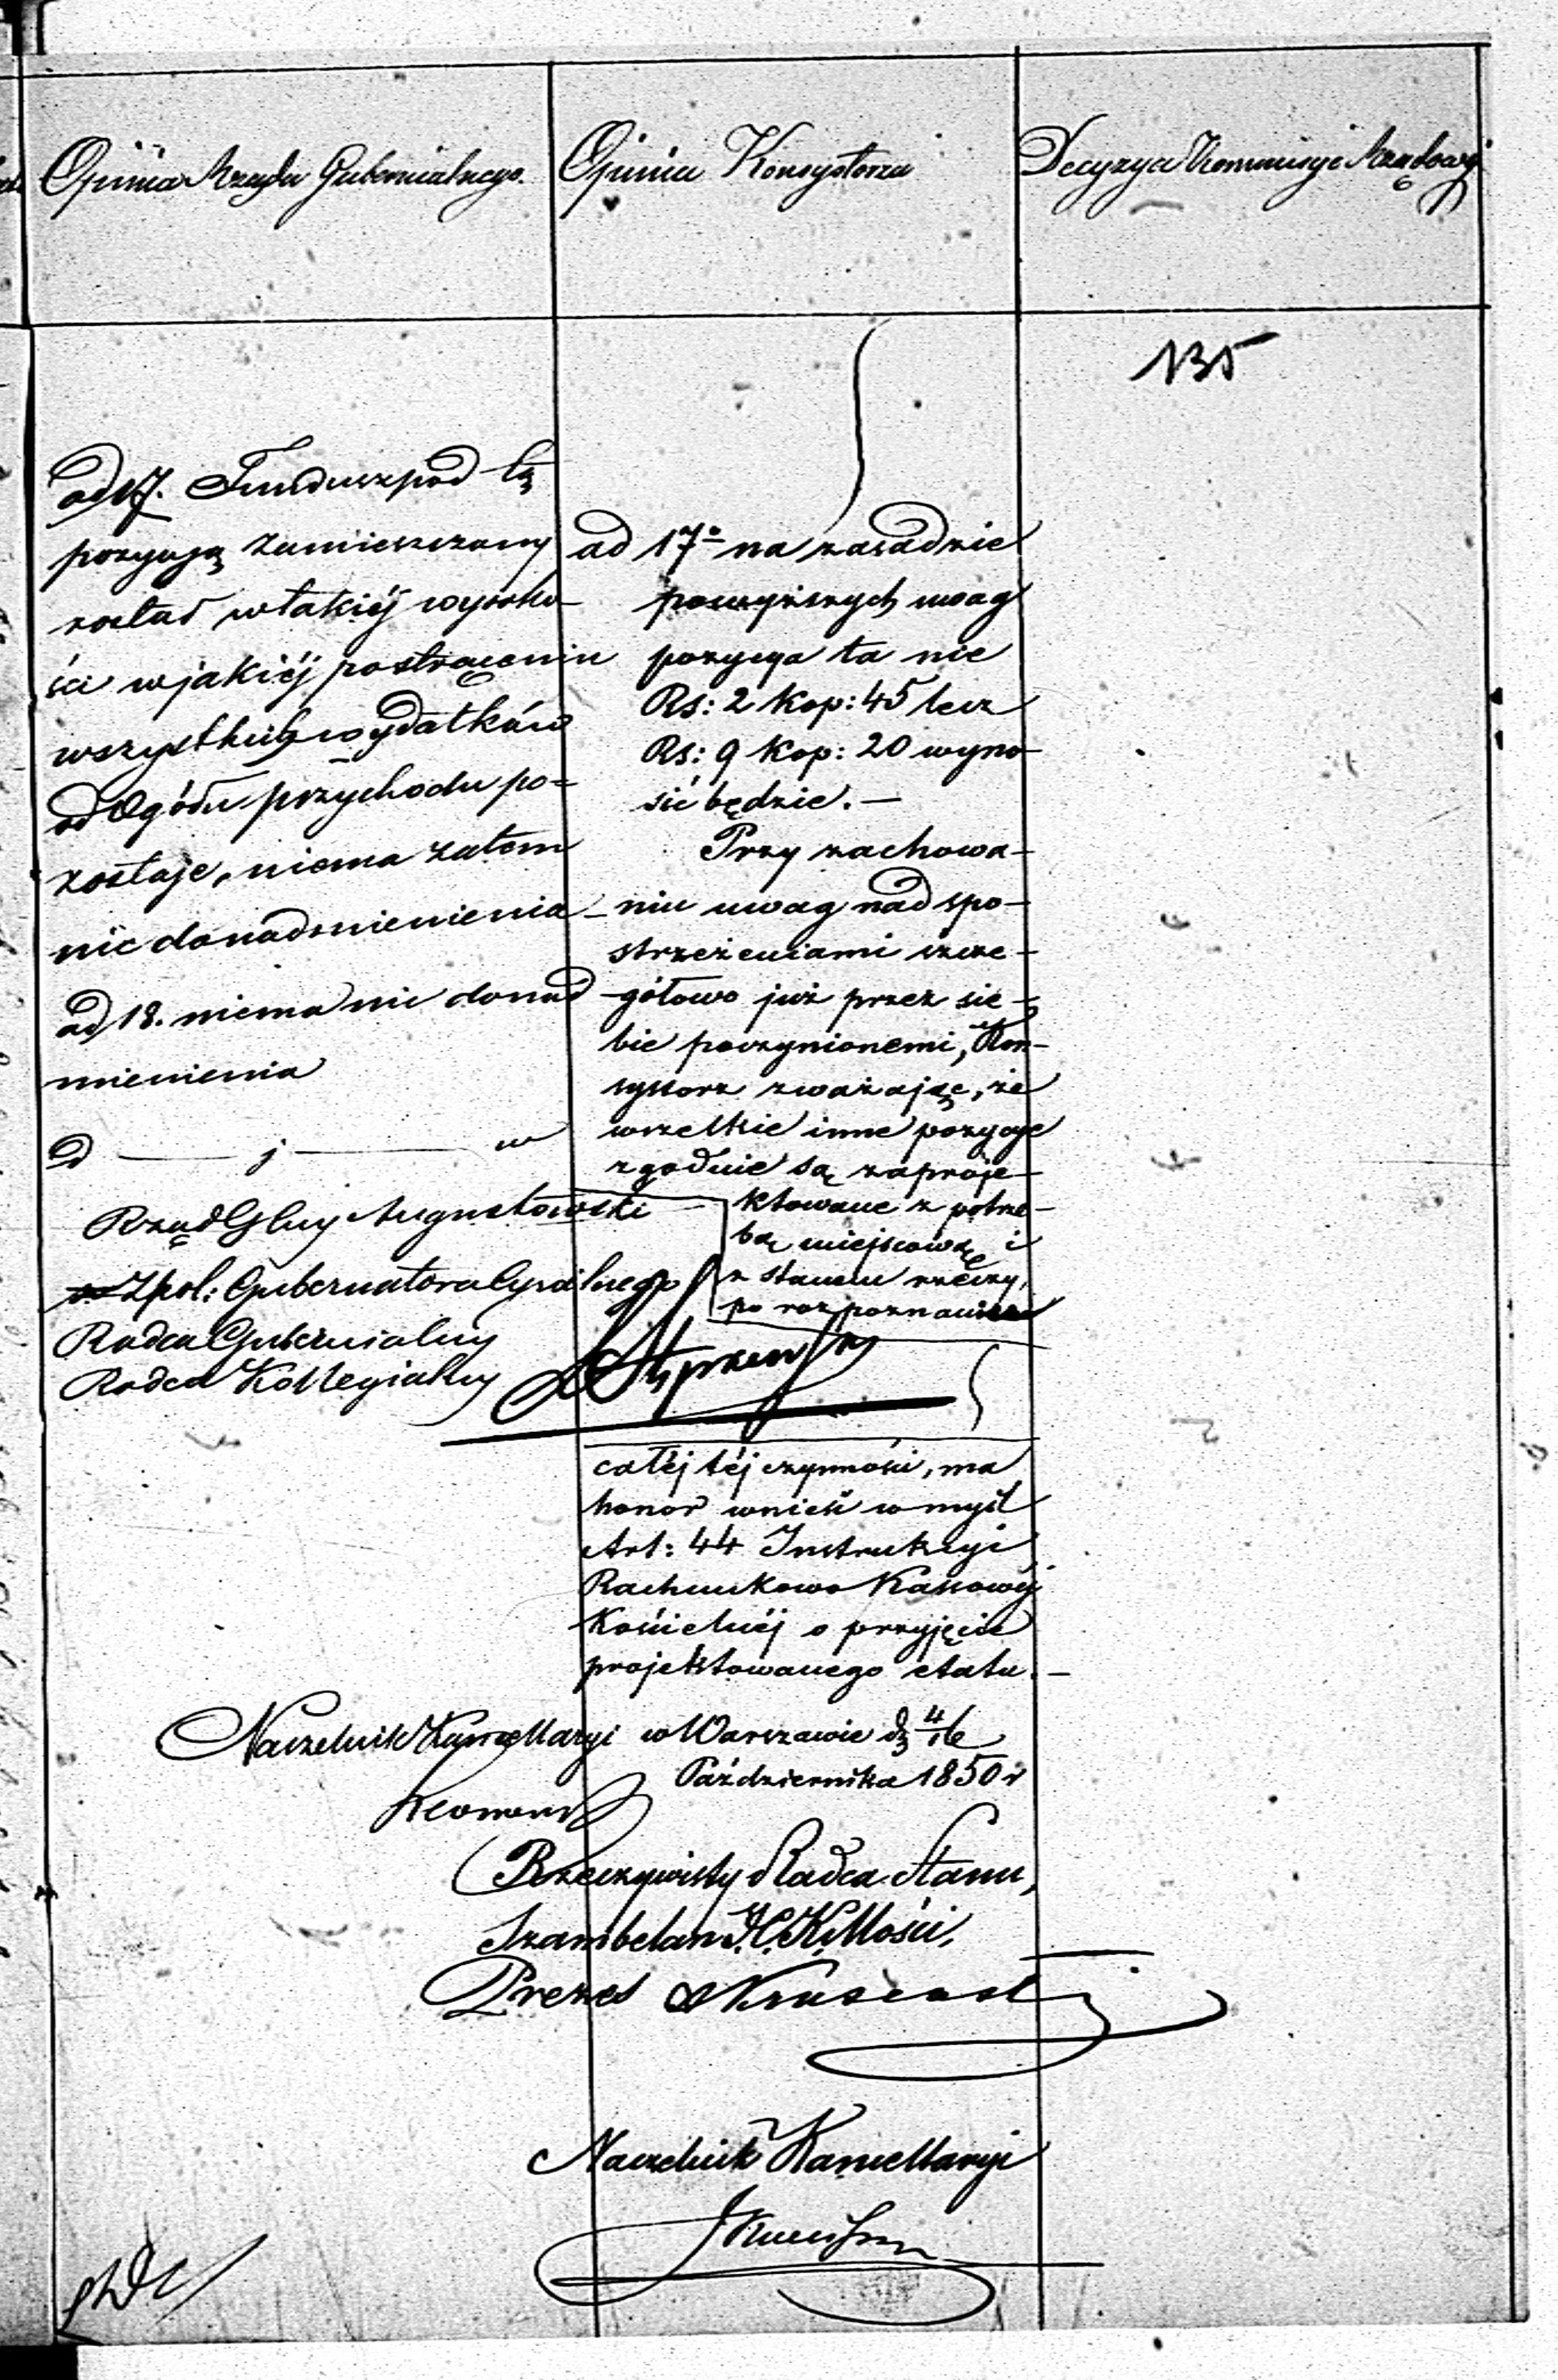 Opinia Rządu Gubernialnego.
Opinia Konsystorza
Decyzya Kommisyi Rządowej
135
ad 17. Fundusz pod tą
pozycyą zamieszczony
został w takiéj wysoko-
ści w jakiéj po strąceniu
wszystkich wydatków
od Ogółu przychodu po-
zostaje, niema zatem
nic do nadmienienia
ad 18. niema nic do nad
mienienia
Rząd Gbny Augustowski
Gubernatora Cywilnego
Radca Gubernialny
Radca Kollegialny
ad 17o na zasadzie
powyższych uwag
pozycya ta nie
Rs: 2 kop: 45 lecz
Rs: 9 kop: 20 wyno-
sić będzie. —
Przy zachowa-
niu uwag nad spo-
strzeżeniami szcze-
gółowo już przez sie-
bie poczynionemi, Kon-
systorz zważając, że
wszelkie inne pozycye
zgodnie są zaproje-
ktowane z potrze-
bą miejscową i
z stanem rzeczy,
po rozpoznaniu
całéj téj czynności, ma
honor wnieść w myśl
Art: 44 Instrukcyi
Rachunkowo Kassowéj
Kościelnéj o przyjęcie
projektowanego etatu. —
Naczelnik Kancellaryi
w Warszawie d. 4/16
Października 1850 r
Rzeczywisty Radca Stanu,
Szambelan J.C.K. Mości,
Prezes
Naczelnik Kancellaryi